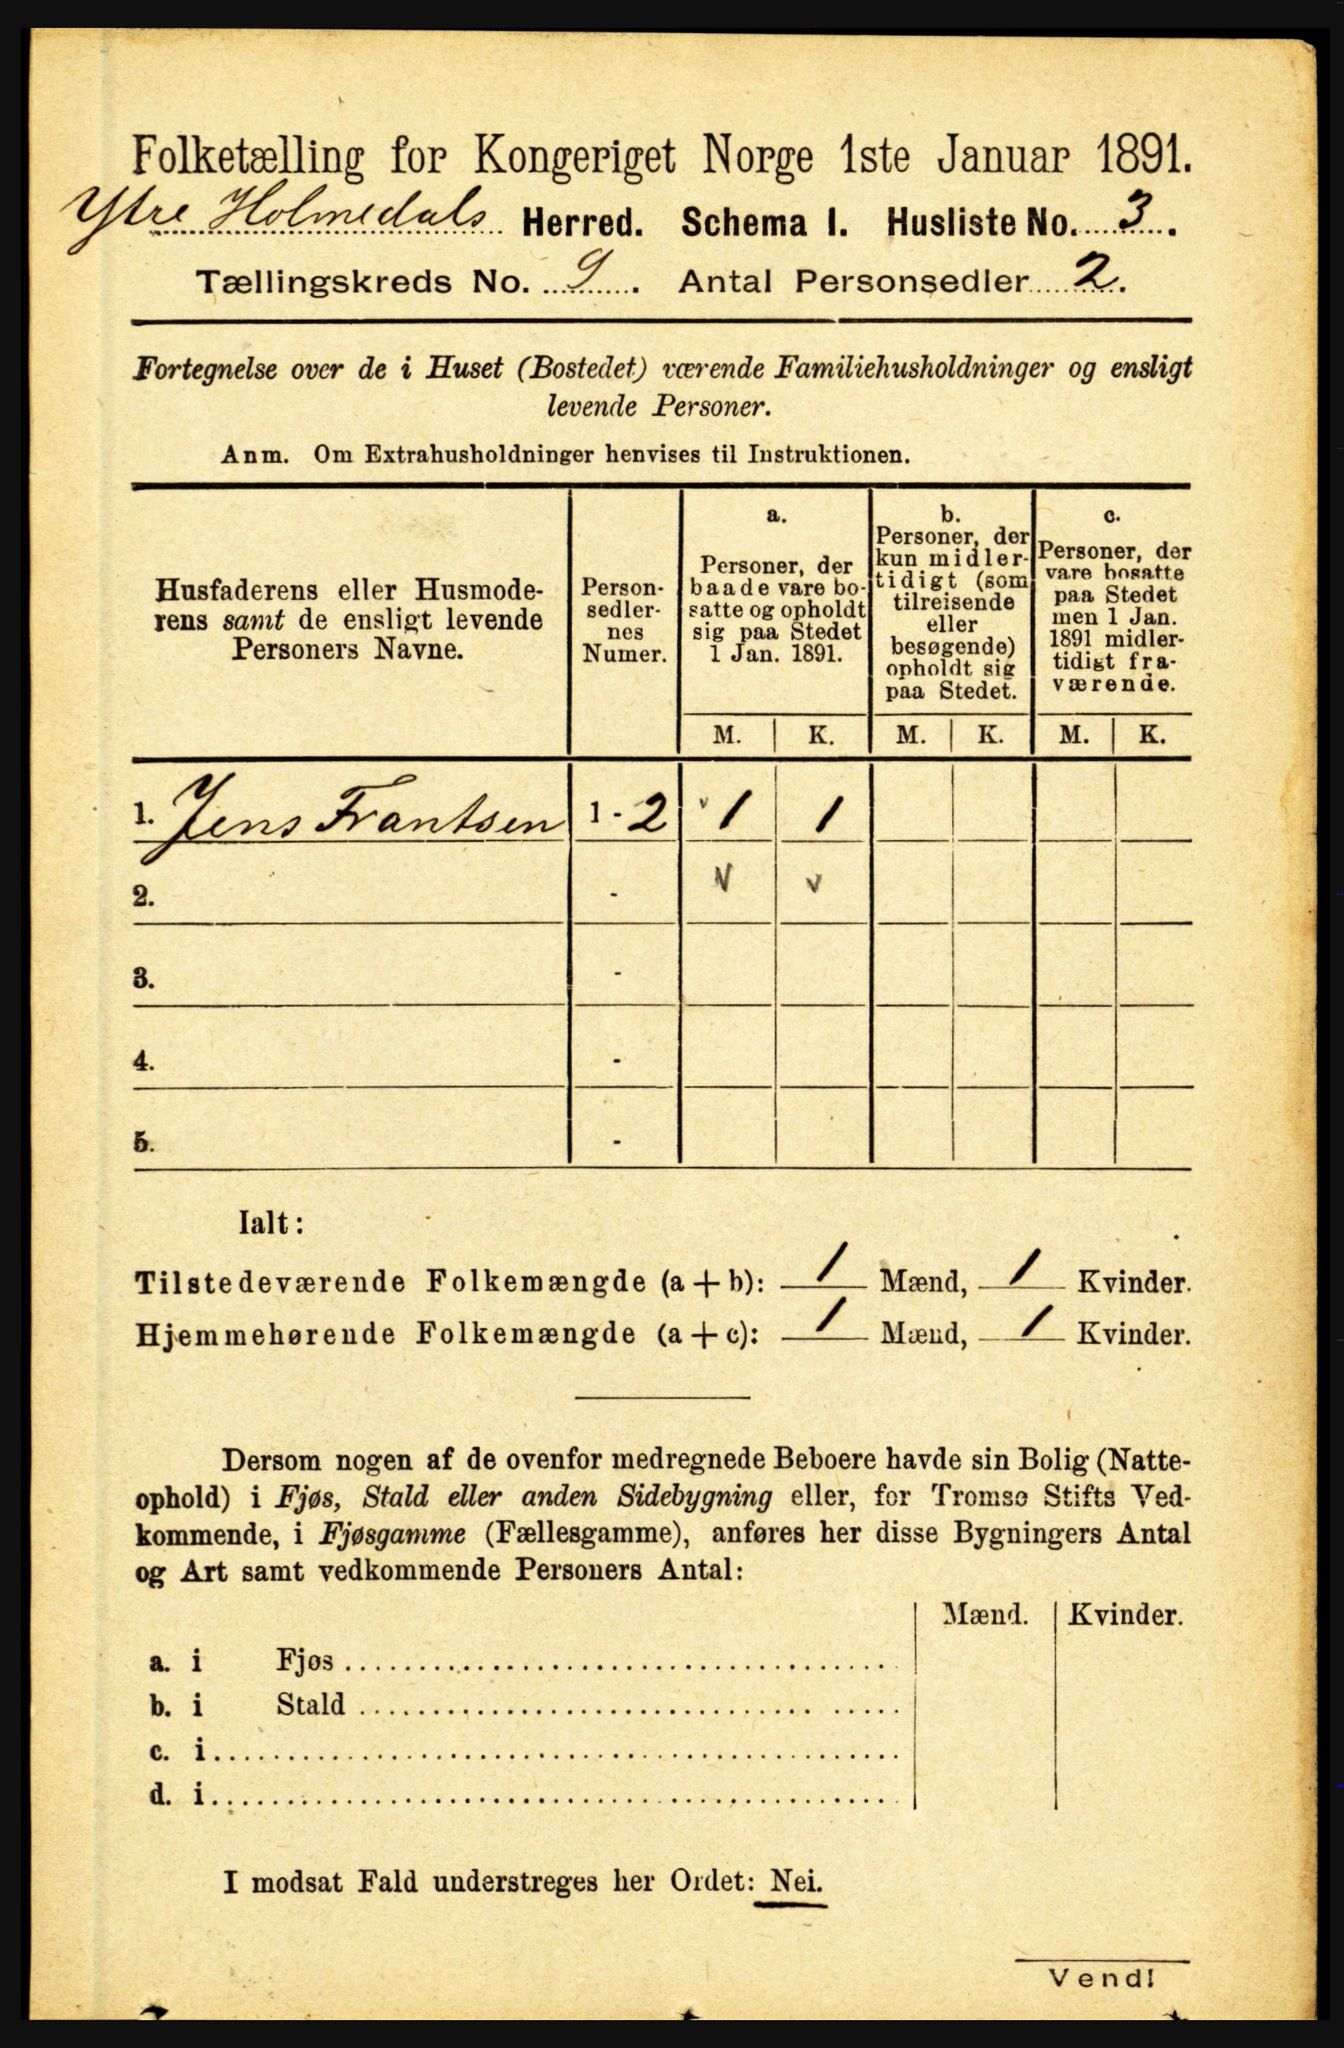 Folketælling for Kongeriget Norge 1ste Januar 1891.
Ytre Holmedals Herred. Schema I. Husliste No. 3.
Tællingskreds No. 9. Antal Personsedler 2.
Fortegnelse over de i Huset (Bostedet) værende Familiehusholdninger og ensligt
levende Personer.
Anm. Om Extrahusholdninger henvises til Instruktionen.
Husfaderens eller Husmode-
rens samt de ensligt levende
Personers Navne.
Person-
sedler-
nes
Numer.
a.
Personer, der
baade vare bo-
satte og opholdt
sig paa Stedet
1 Jan. 1891.
b.
Personer, der
kun midler-
tidigt (som
tilreisende
eller
besøgende)
opholdt sig
paa Stedet.
c.
Personer, der
vare bosatte
paa Stedet
men 1 Jan.
1891 midler-
tidigt fra-
værende.
M. K. M. K. M. K.
1. Jens Frantsen 1 - 2 v 1 1
2. - v v
3. -
4. -
5. -
Ialt:
Tilstedeværende Folkemængde (a + b): 1 Mænd, 1 Kvinder.
Hjemmehørende Folkemængde (a + c): 1 Mænd, 1 Kvinder.
Dersom nogen af de ovenfor medregnede Beboere havde sin Bolig (Natte-
ophold) i Fjøs, Stald eller anden Sidebygning eller, for Tromsø Stifts Ved-
kommende, i Fjøsgamme (Fællesgamme), anføres her disse Bygningers Antal
og Art samt vedkommende Personers Antal:
Mænd. Kvinder.
a. i Fjøs
b. i Stald
c. i
d. i
I modsat Fald understreges her Ordet: Nei.
Vend!